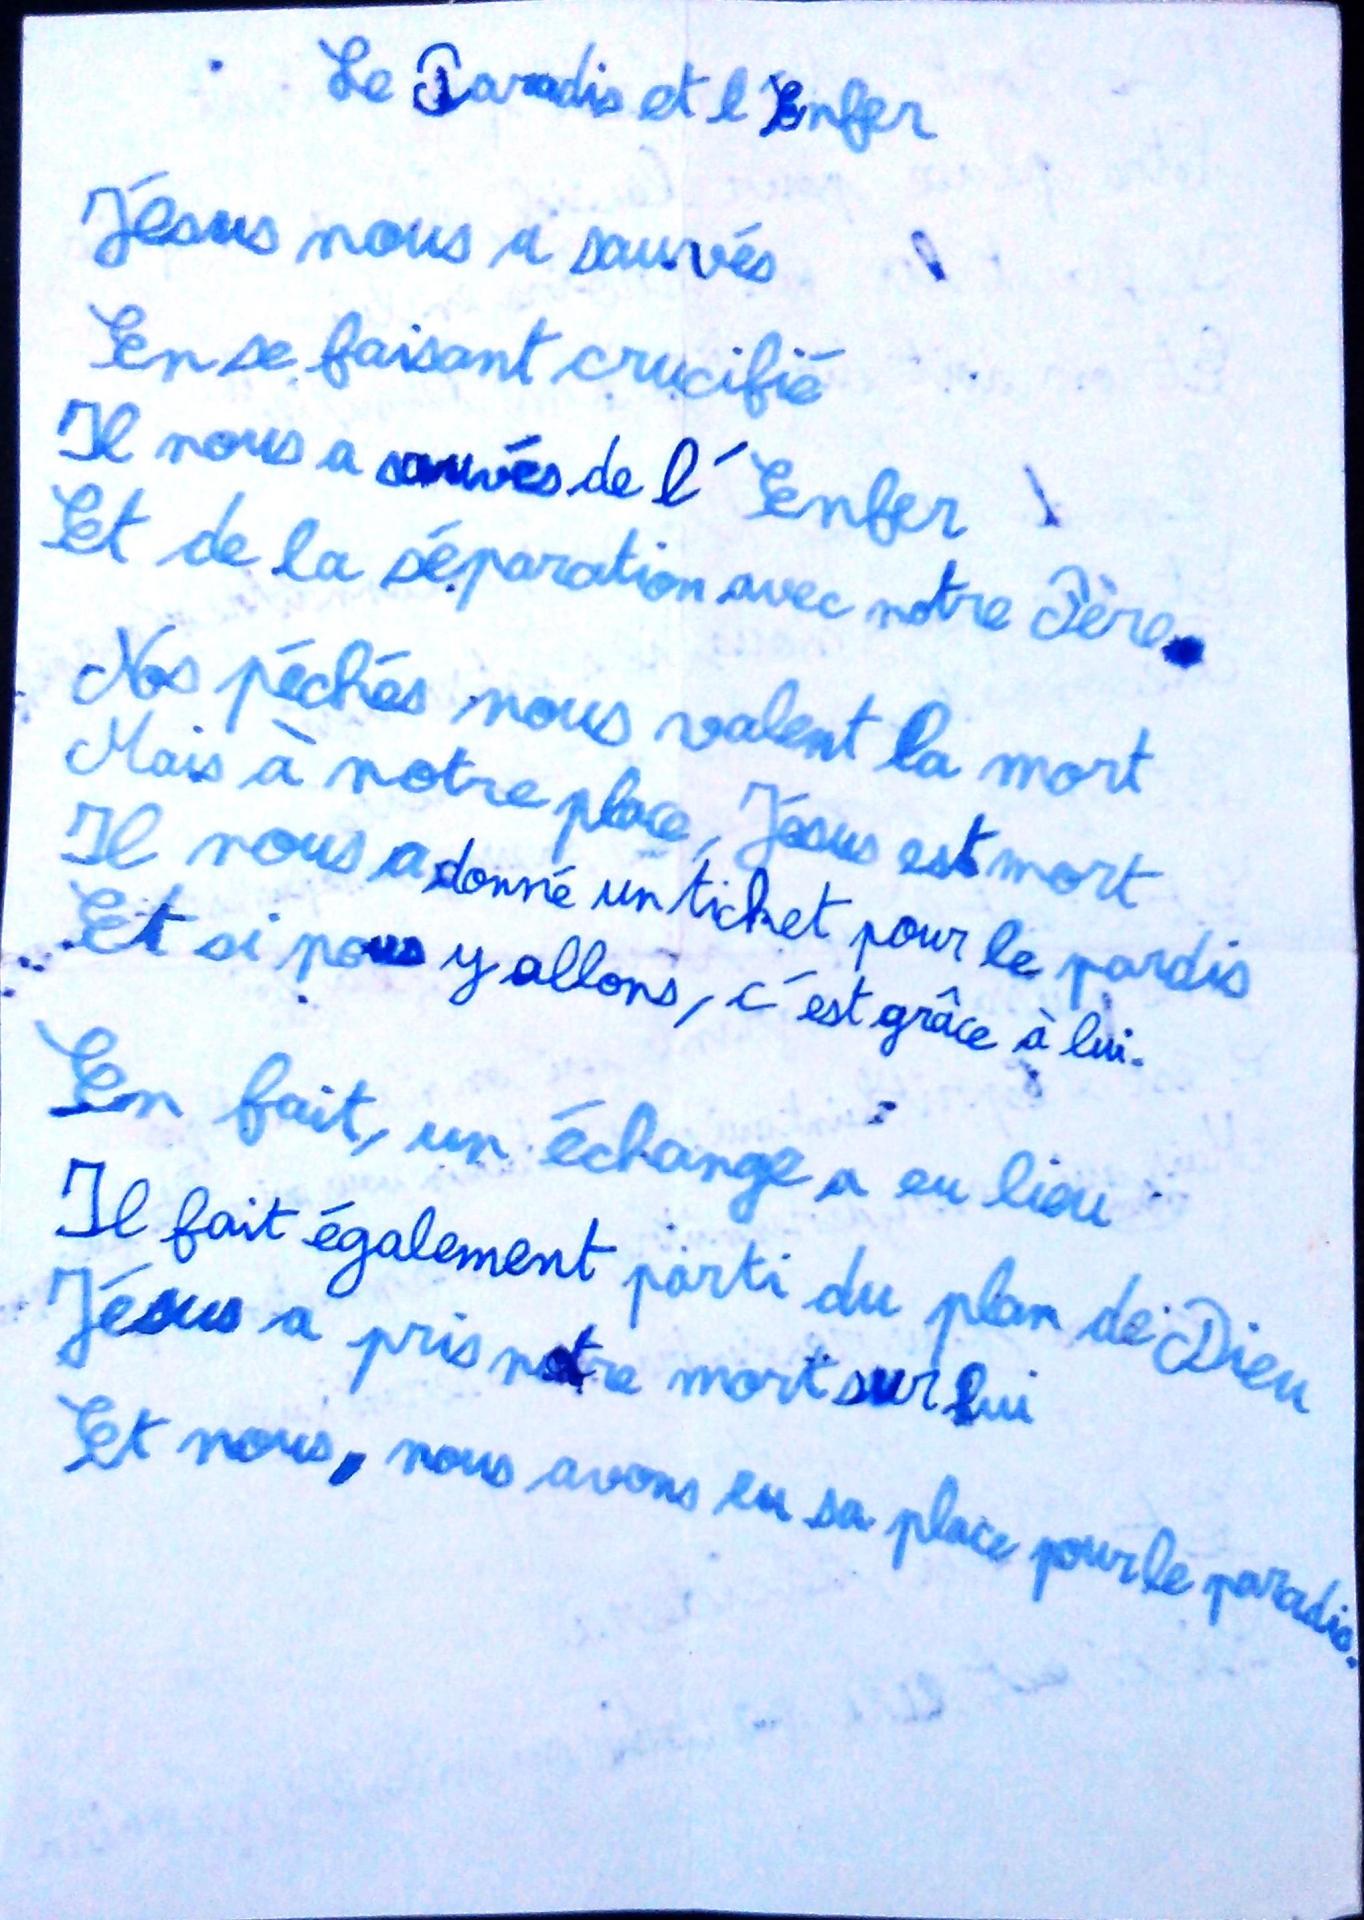 Le Paradis et l'Enfer
Jésus nous a sauvés
En se faisant crucifié
Il nous a sauvés de l'Enfer
Et de la séparation avec notre Père.
Nos péchés nous valent la mort
Mais à notre place, Jésus est mort
Il nous a donné un ticket pour le pardis
Et si nous y allons, c'est grâce à lui.
En fait, un échange a eu lieu
Il fait également parti du plan de Dieu
Jésus a pris notre mort sur lui
Et nous, nous avons eu sa place pour le paradis.